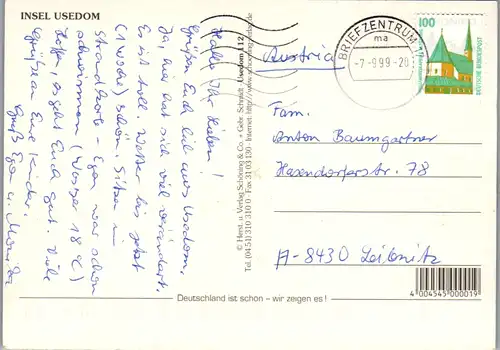 INSEL USEDOM
Hallo Ihr Lieben!
Grüßen Euch lieb aus Usedom.
Ja, hier hat sich viel verändert.
Es ist toll. Wetter bis jetzt
(1 Woche) schön. Sitzen im
Strandkorb - Egon war schon
schwimmen (Wasser 18°C)
Hoffe, es geht Euch gut. Viele
Grüße an Eure Kinder.
Gruß Egon u. Monika
© Herst. u. Verlag Schöning & Co. + Gebr. Schmidt
Tel. (04 51) 310 310 0 · Fax 31 03 130 · Internet: http://www.schoening-verlag.de
Usedom
Austria
BRIEFZENTRUM 17
ma
-7.-9.99-20
100
DEUTSCHE BUNDESPOST
Fam.
Anton Baumgartner
Hasendorferstr. 78
A-8430 Leibnitz
Deutschland ist schön – wir zeigen es!
4 004545 000019